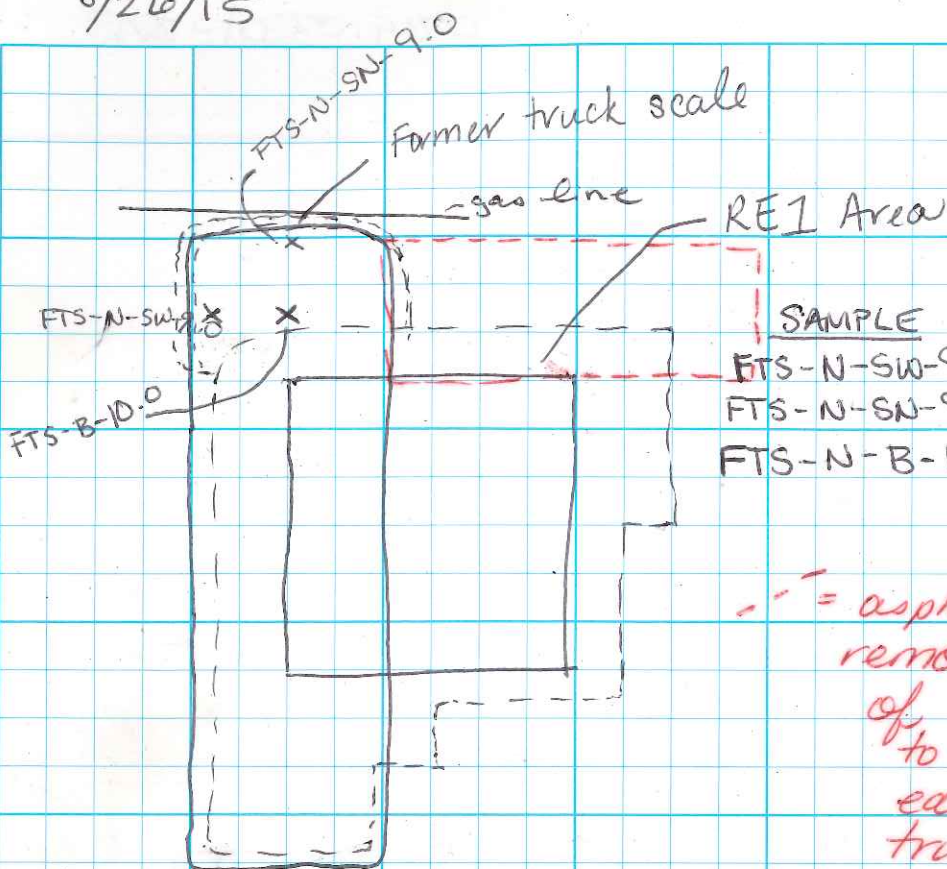 /26/15
FTS-N-SN-9.0
Former truck scale
gas line
RE1 Area
FTS-N-SW-9.0
FTS-B-10.0
SAMPLE
FTS-N-SW-9
FTS-N-SN-9
FTS-N-B-1
= asph
remo
of
to
ea
tra